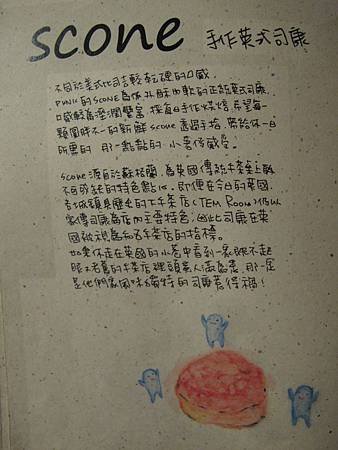 scone 手作英式司康
不同於美式比司吉輕乾硬的口感,
PUNK的SCONE為係外酥內軟的正統英式司康,
口感較為溼潤豐富,採每日手作烘焙,希望每一
顆圓時不一的新鮮scone透過手捨,帶給你一日
所需的 那一點點的,小奢侈感受。
scone源自於蘇格蘭,為英國傳統午茶桌上最
不可或缺的特色點心,即便在今日的英國,
古城鎮具歷史的下午茶店(TEM Room)仍以
家傳司康為店內主要特色,因此司康在英
國被視為和下午茶店的指標。
如果你走在英國的小巷中看到一家毫不起
眼又老舊的午茶店裡頭客人滿為患,那一定
是他們家風味獨特的司康惹得禍!